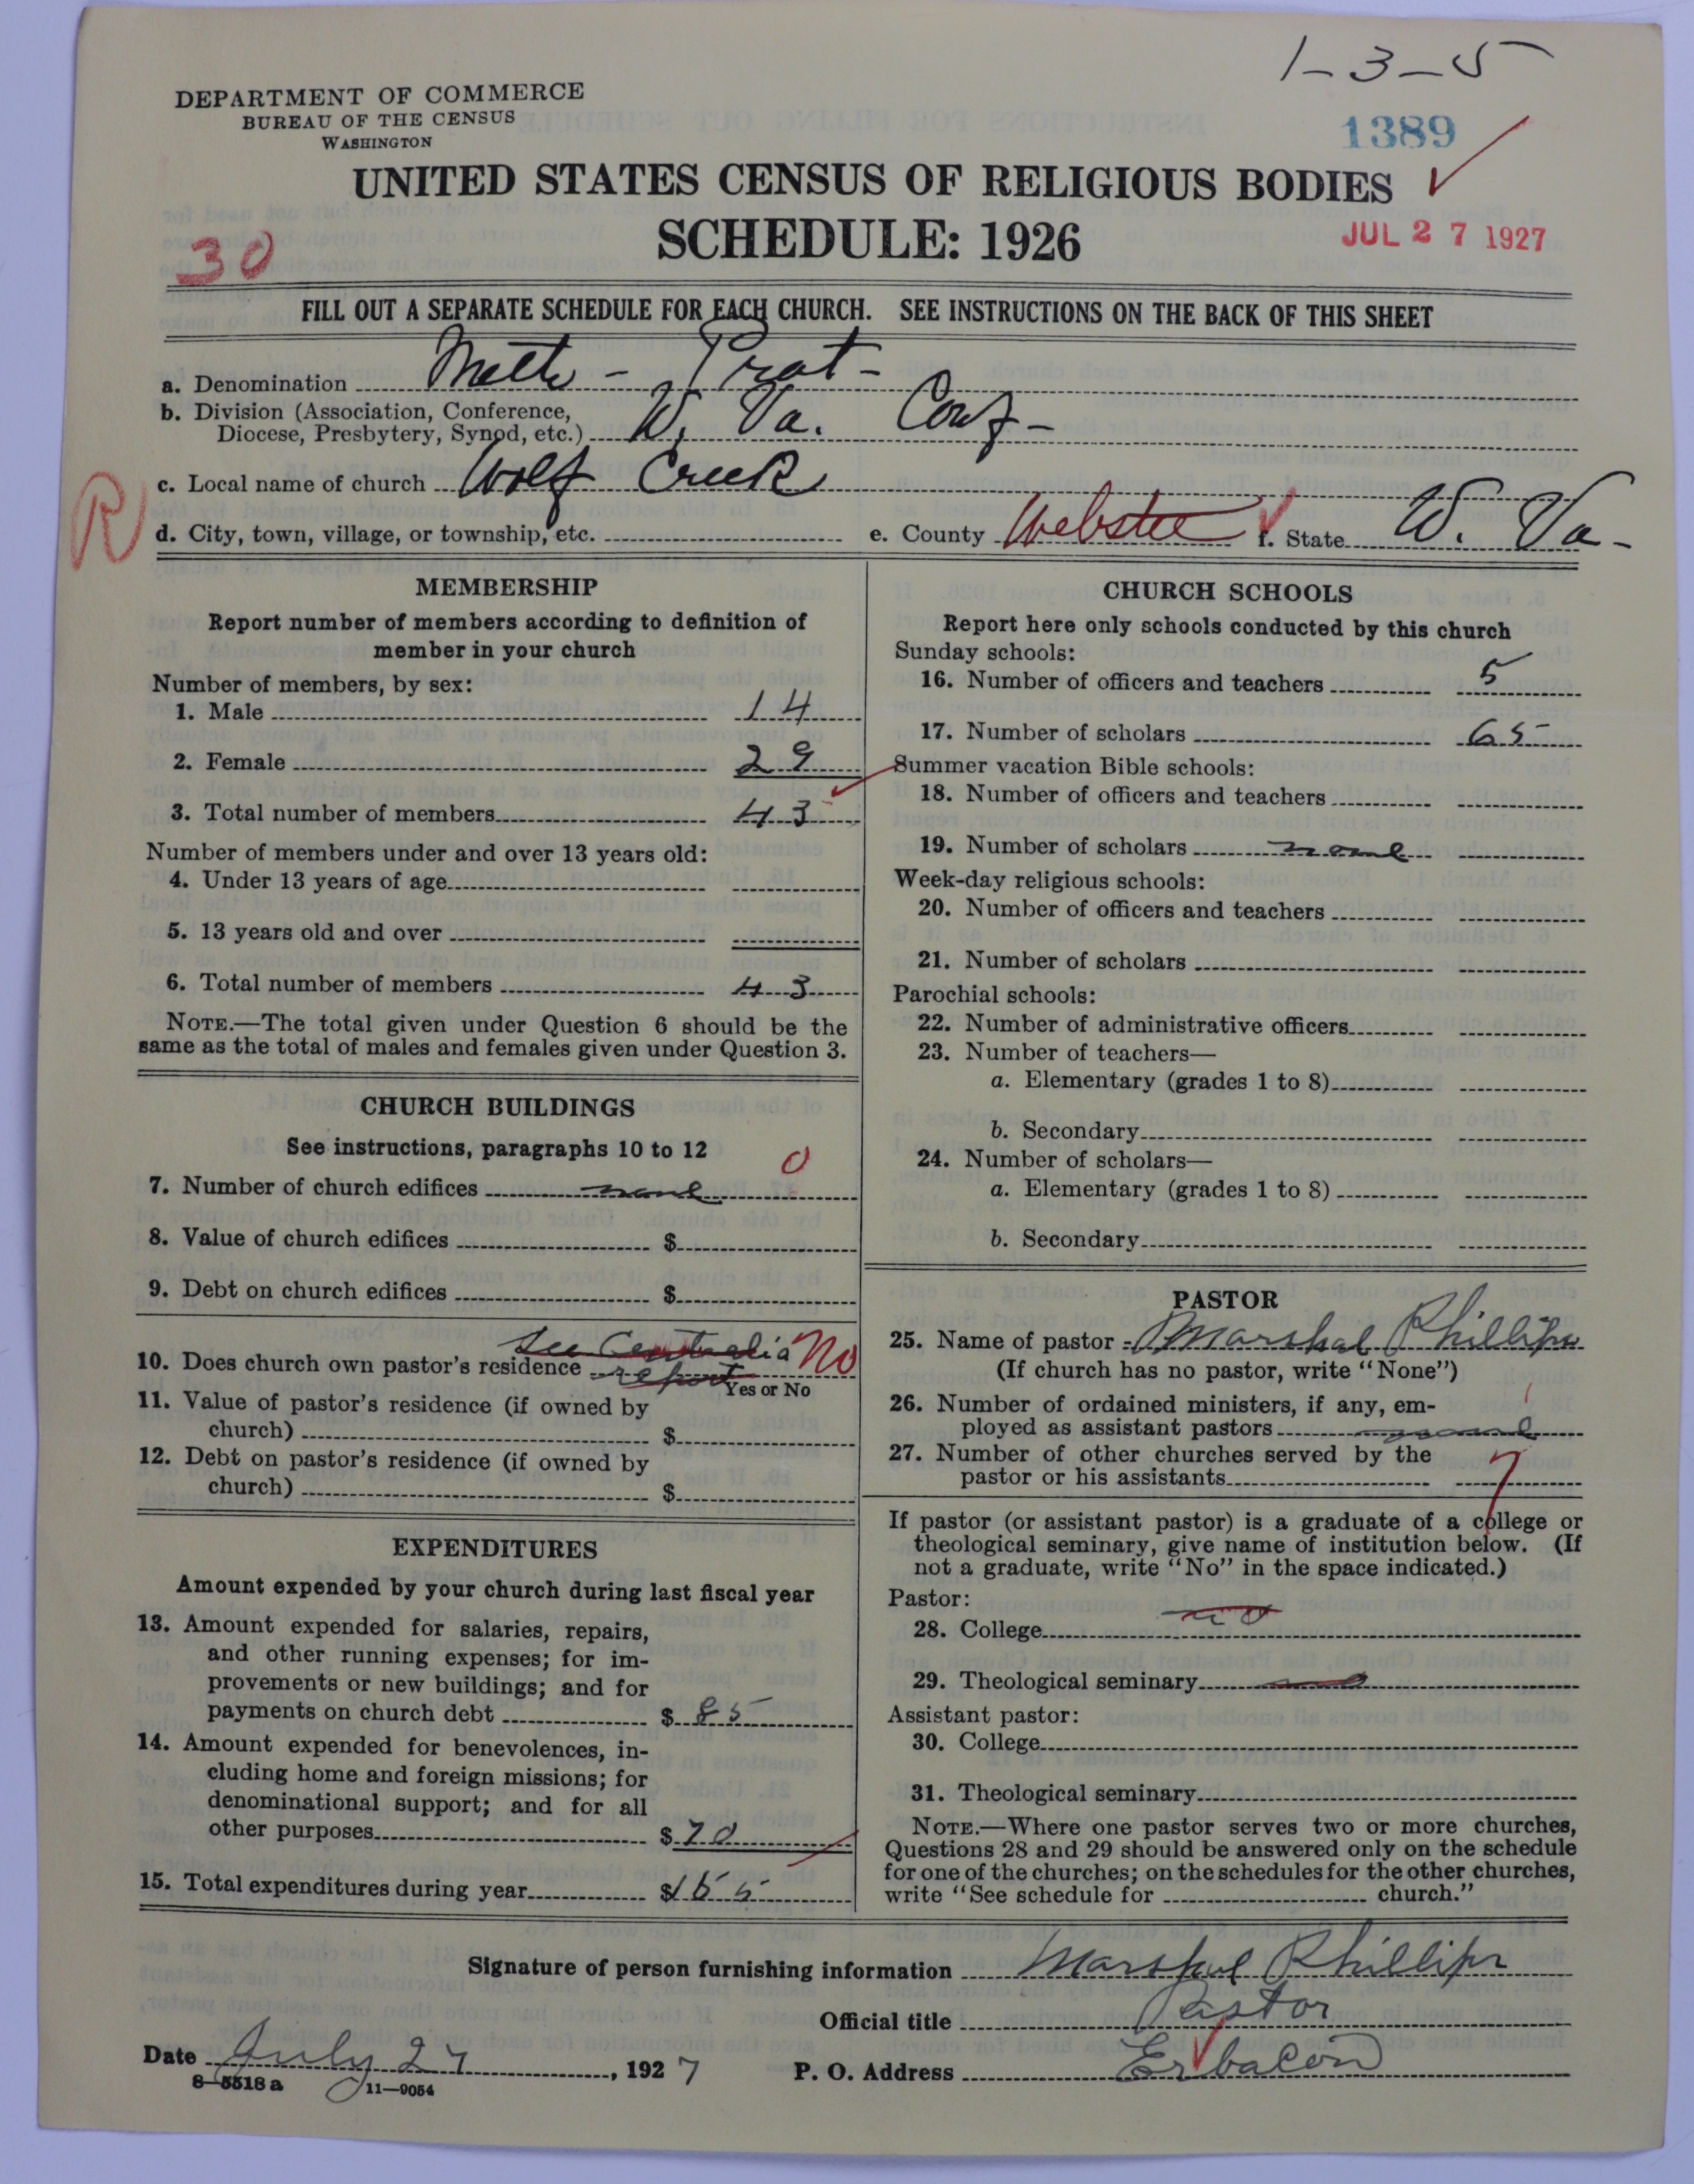 1-3-5
DEPARTMENT OF COMMERCE
BUREAU OF THE CENSUS
WASHINGTON
1389
UNITED STATES CENSUS OF RELIGIOUS BODIES
SCHEDULE: 1926
JUL 27 1927
30
FILL OUT A SEPARATE SCHEDULE FOR EACH CHURCH. SEE INSTRUCTIONS ON THE BACK OF THIS SHEET
a. Denomination Meth - Prot -
b. Division (Association, Conference,
Diocese, Presbytery, Synod, etc.) W. Va. Conf -
R
c. Local name of church Wolf Creek
d. City, town, village, or township, etc. e. County Webster f. State W. Va-
MEMBERSHIP
Report number of members according to definition of
member in your church
Number of members, by sex:
1. Male 14
2. Female 29
3. Total number of members 43
Number of members under and over 13 years old:
4. Under 13 years of age
5. 13 years old and over
6. Total number of members 43
NOTE.—The total given under Question 6 should be the
same as the total of males and females given under Question 3.
CHURCH BUILDINGS
See instructions, paragraphs 10 to 12
0
7. Number of church edifices none
8. Value of church edifices $
9. Debt on church edifices $
See Centralia No
10. Does church own pastor's residence report
Yes or No
11. Value of pastor's residence (if owned by
church) $
12. Debt on pastor's residence (if owned by
church) $
EXPENDITURES
Amount expended by your church during last fiscal year
13. Amount expended for salaries, repairs,
and other running expenses; for im-
provements or new buildings; and for
payments on church debt $ 85
14. Amount expended for benevolences, in-
cluding home and foreign missions; for
denominational support; and for all
other purposes $ 70
15. Total expenditures during year $155
CHURCH SCHOOLS
Report here only schools conducted by this church
Sunday schools:
16. Number of officers and teachers 5
17. Number of scholars 65
Summer vacation Bible schools:
18. Number of officers and teachers
19. Number of scholars none
Week-day religious schools:
20. Number of officers and teachers
21. Number of scholars
Parochial schools:
22. Number of administrative officers
23. Number of teachers—
a. Elementary (grades 1 to 8)
b. Secondary
24. Number of scholars—
a. Elementary (grades 1 to 8)
b. Secondary
PASTOR
25. Name of pastor Marshal Phillips
(If church has no pastor, write "None")
26. Number of ordained ministers, if any, em-
ployed as assistant pastors none
27. Number of other churches served by the
pastor or his assistants 7
If pastor (or assistant pastor) is a graduate of a college or
theological seminary, give name of institution below. (If
not a graduate, write "No" in the space indicated.)
Pastor:
28. College no
29. Theological seminary
Assistant pastor:
30. College
31. Theological seminary
NOTE.—Where one pastor serves two or more churches,
Questions 28 and 29 should be answered only on the schedule
for one of the churches; on the schedules for the other churches,
write "See schedule for church."
Signature of person furnishing information Marshal Phillips
Official title Pastor
Date July 27, 1927 P. O. Address Erbacon
8-5518a 11-9054